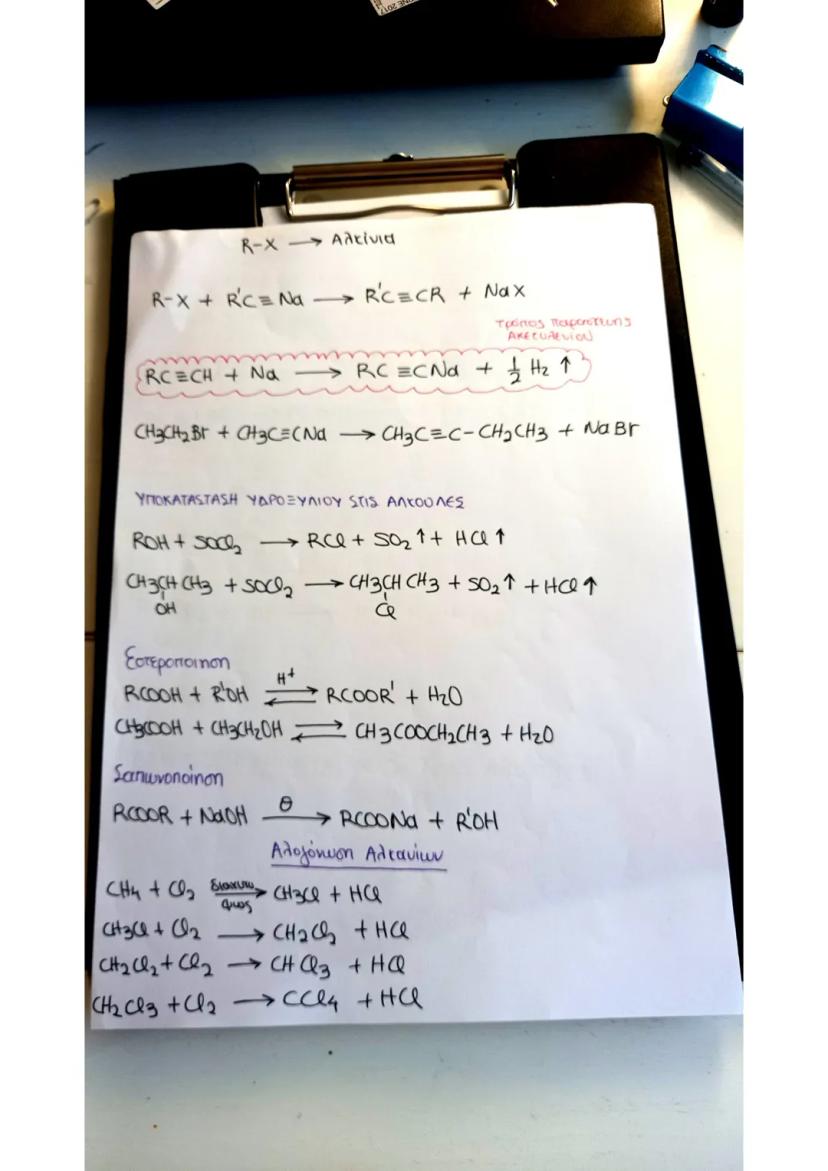 NE 2017
R-X → Αλκίνια
R-X + R'C≡Na → R'C≡CR + NaX
Τρόπος παρασκευής
ΑΚΕΤΥΛΕΝΙΟΝ
RC≡CH + Na → RC≡CNa + 1/2 H2 ↑
CH3CH2Br + CH3C≡CNa → CH3C≡C-CH2CH3 + NaBr
ΥΠΟΚΑΤΑΣΤΑΣΗ ΥΔΡΟΞΥΛΙΟΥ ΣΤΙΣ ΑΛΚΟΟΛΕΣ
ROH + SOCl2 → RCl + SO2↑ + HCl↑
CH3CHCH3 + SOCl2 → CH3CHCH3 + SO2↑ + HCl↑
OH Cl
Εστεροποιηση
RCOOH + R'OH ⇌ H+ RCOOR' + H2O
CH3COOH + CH3CH2OH ⇌ CH3COOCH2CH3 + H2O
Σαπωνοποίηση
RCOOR + NaOH θ → RCOONa + R'OH
Αλογόνωση Αλκανίων
CH4 + Cl2 διαχυτο φως → CH3Cl + HCl
CH3Cl + Cl2 → CH2Cl2 + HCl
CH2Cl2 + Cl2 → CHCl3 + HCl
CH2Cl3 + Cl2 → CCl4 + HCl